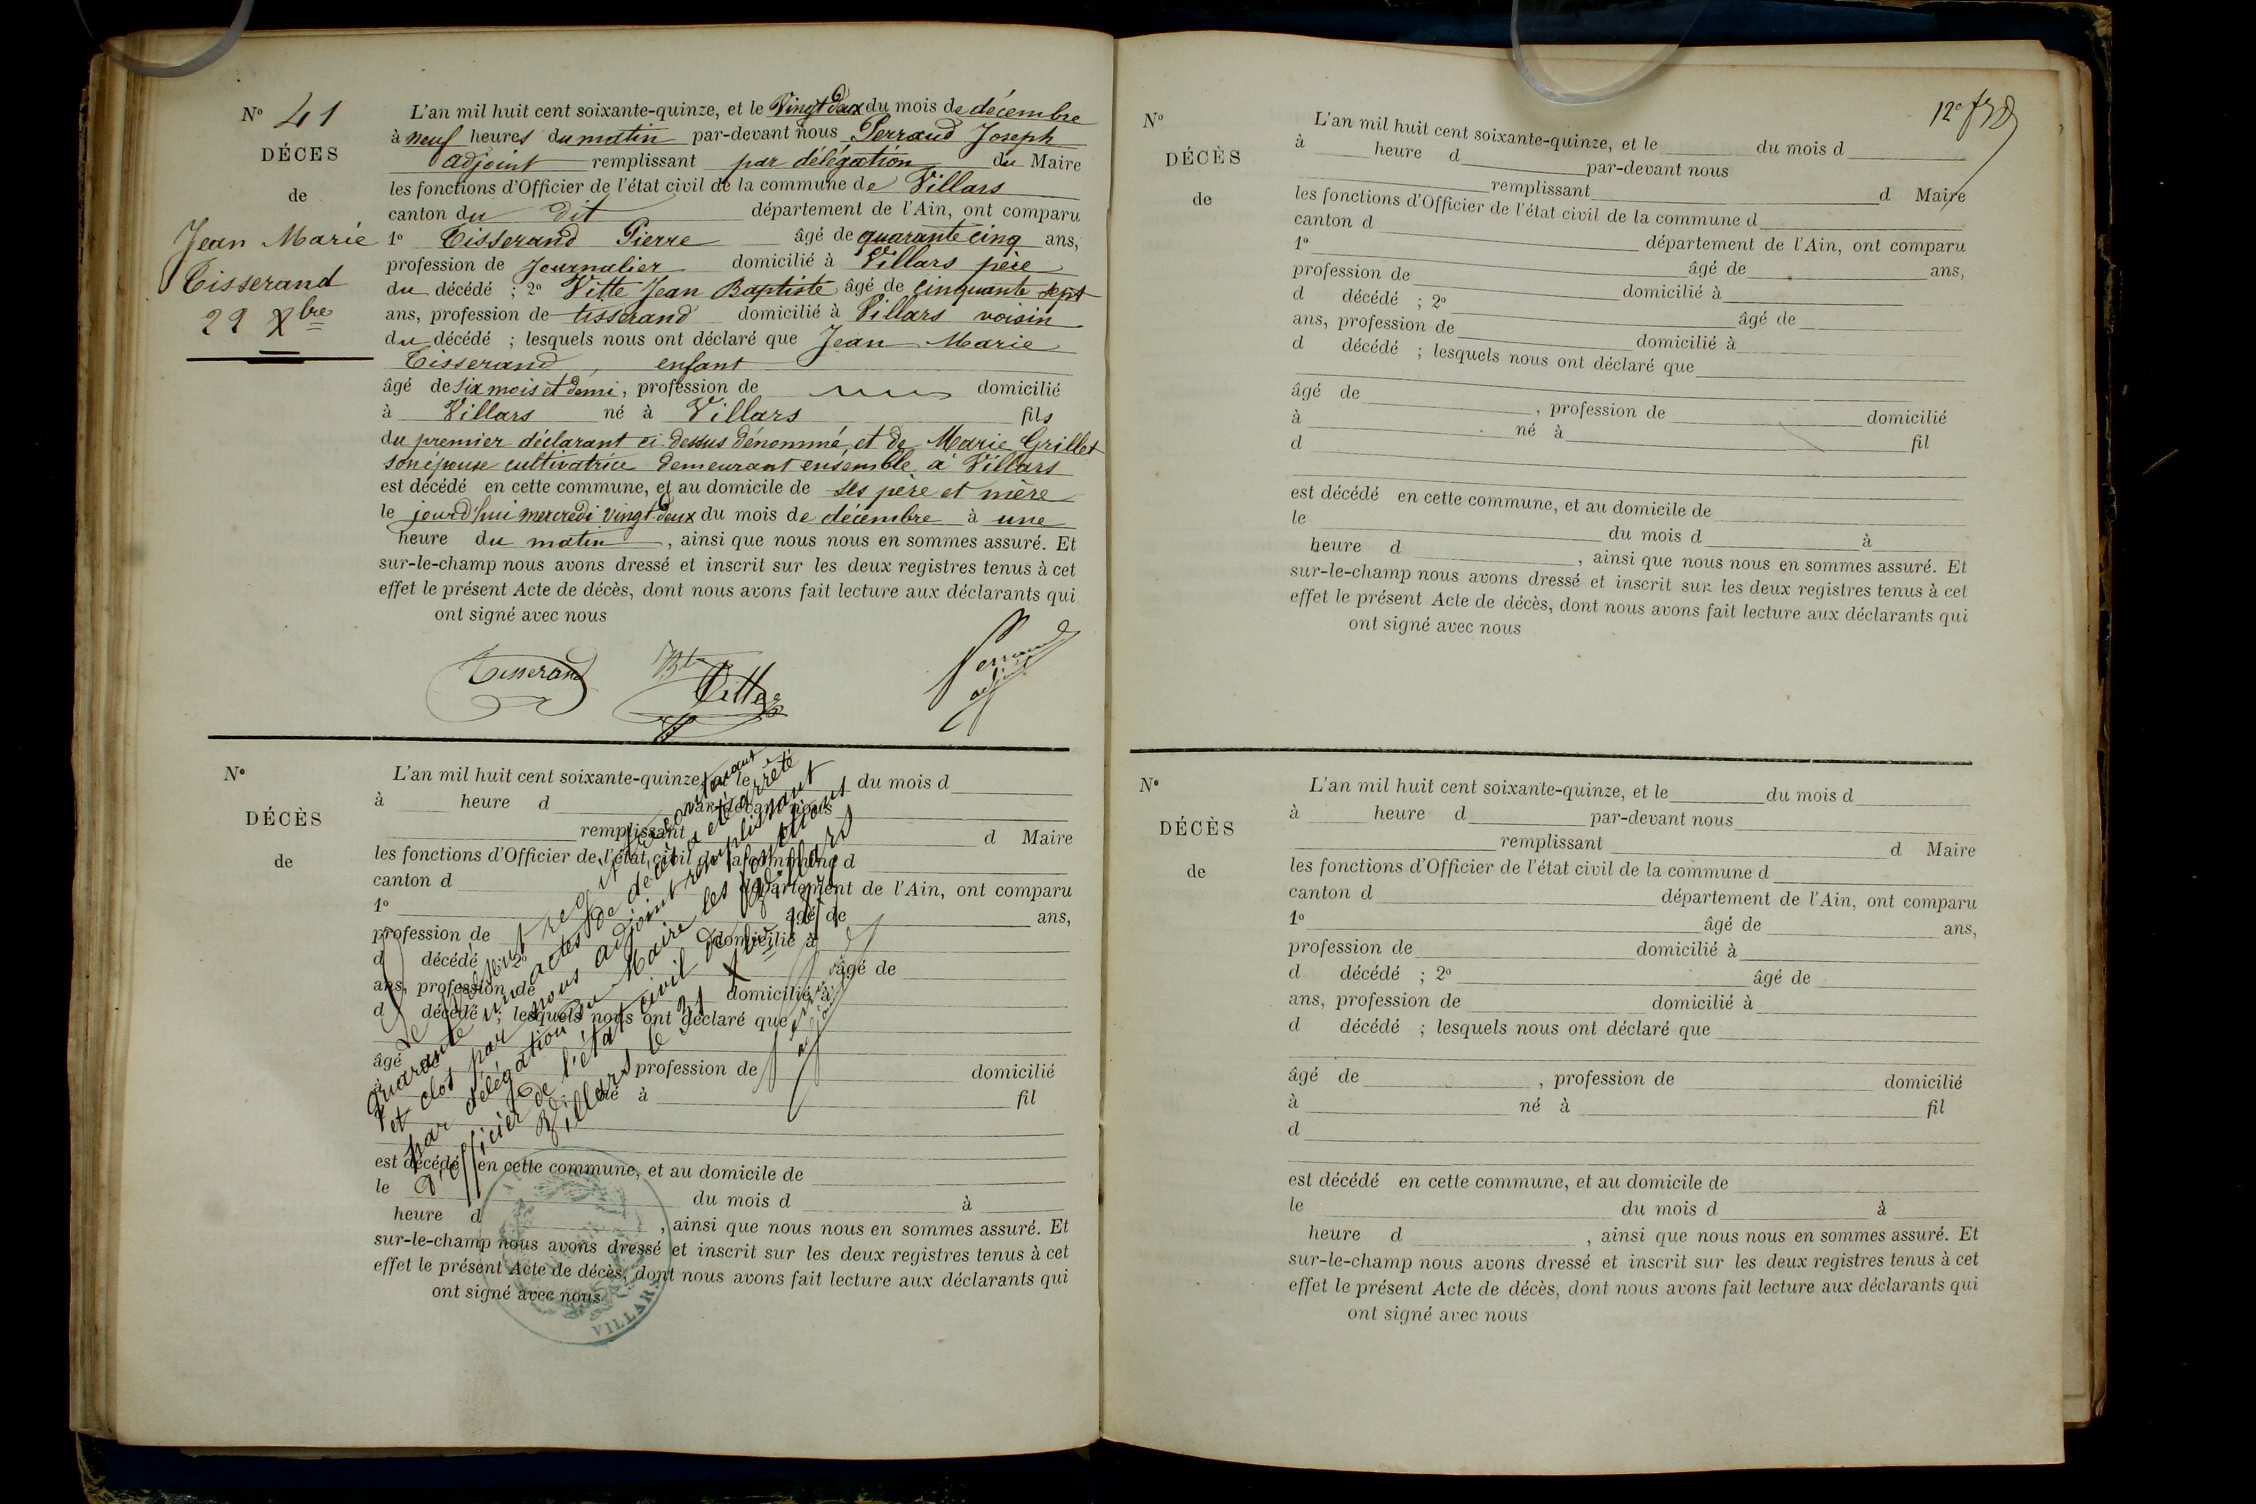 N° 41
DÉCES
de
Jean Marie
Tisserand
22 Xbre
L'an mil huit cent soixante-quinze, et le Vingt Deux du mois de décembre
à neuf heures du matin par-devant nous Perraud Joseph
adjoint remplissant par délégation du Maire
les fonctions d'Officier de l'état civil de la commune de Villars
canton du dit département de l'Ain, ont comparu
1° Tisserand Pierre âgé de quarante cinq ans,
profession de Journalier domicilié à Villars père
du décédé ; 2° Vitte Jean Baptiste âgé de cinquante sept
ans, profession de tisserand domicilié à Villars voisin
du décédé ; lesquels nous ont déclaré que Jean Marie
Tisserand enfant
âgé de six mois et demi, profession de domicilié
à Villars né à Villars fils
du premier déclarant ci dessus dénommé, et de Marie Grillet
son épouse cultivatrice demeurant ensemble à Villars
est décédé en cette commune, et au domicile de ses père et mère
le jourd'hui mercredi vingt deux du mois de décembre à une
heure du matin, ainsi que nous nous en sommes assuré. Et
sur-le-champ nous avons dressé et inscrit sur les deux registres tenus à cet
effet le présent Acte de décès, dont nous avons fait lecture aux déclarants qui
ont signé avec nous
Tisserand Bte Vitte Perraud adjoint
N°
DÉCÈS
de
L'an mil huit cent soixante-quinze, et le du mois d
à heure d par-devant nous
remplissant d Maire
les fonctions d'Officier de l'état civil de la commune d
canton d département de l'Ain, ont comparu
1° âgé de ans,
profession de domicilié à
d décédé ; 2° âgé de
ans, profession de domicilié à
d décédé ; lesquels nous ont déclaré que
âgé profession de domicilié
à né à fil
est décédé en cette commune, et au domicile de
le du mois d à
heure d , ainsi que nous nous en sommes assuré. Et
sur-le-champ nous avons dressé et inscrit sur les deux registres tenus à cet
effet le présent Acte de décès, dont nous avons fait lecture aux déclarants qui
ont signé avec nous
Le présent registre contenant
quarante un actes de décès a été arrêté
et clos par nous adjoint remplissant
par délégation du Maire les fonctions
d'officier de l'état civil de Villars
Villars le 31 Xbre 1875
adjoint
VILLARS
12e
N°
DÉCÈS
de
L'an mil huit cent soixante-quinze, et le du mois d
à heure d par-devant nous
remplissant d Maire
les fonctions d'Officier de l'état civil de la commune d
canton d département de l'Ain, ont comparu
1° âgé de ans,
profession de domicilié à
d décédé ; 2° âgé de
ans, profession de domicilié à
d décédé ; lesquels nous ont déclaré que
âgé de , profession de domicilié
à né à fil
d
est décédé en cette commune, et au domicile de
le du mois d à
heure d , ainsi que nous nous en sommes assuré. Et
sur-le-champ nous avons dressé et inscrit sur les deux registres tenus à cet
effet le présent Acte de décès, dont nous avons fait lecture aux déclarants qui
ont signé avec nous
N°
DÉCÈS
de
L'an mil huit cent soixante-quinze, et le du mois d
à heure d par-devant nous
remplissant d Maire
les fonctions d'Officier de l'état civil de la commune d
canton d département de l'Ain, ont comparu
1° âgé de ans,
profession de domicilié à
d décédé ; 2° âgé de
ans, profession de domicilié à
d décédé ; lesquels nous ont déclaré que
âgé de , profession de domicilié
à né à fil
d
est décédé en cette commune, et au domicile de
le du mois d à
heure d , ainsi que nous nous en sommes assuré. Et
sur-le-champ nous avons dressé et inscrit sur les deux registres tenus à cet
effet le présent Acte de décès, dont nous avons fait lecture aux déclarants qui
ont signé avec nous